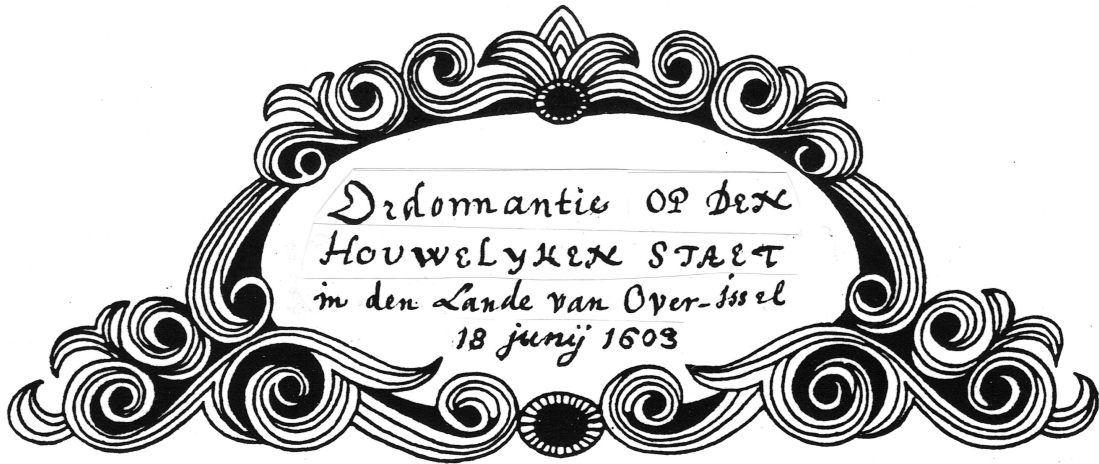 Ordonnantie OP DEN
HOUWELYKEN STAET
in den Lande van Over-issel
18 junij 1603